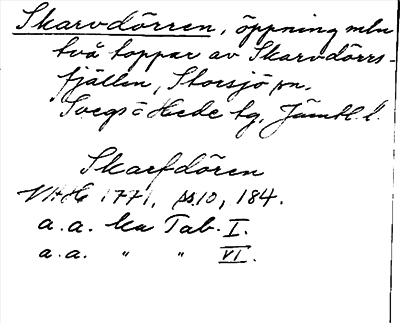 Skarvdörren, öppning mln
två toppar av Skarvdörrs-
fjällen, Storsjö sn.
Svegs o Hede tg, Jämtl. l.
Skarfdören
1771, ss.10, 184.
a.a. ka Tab. I.
a.a. " " VI.